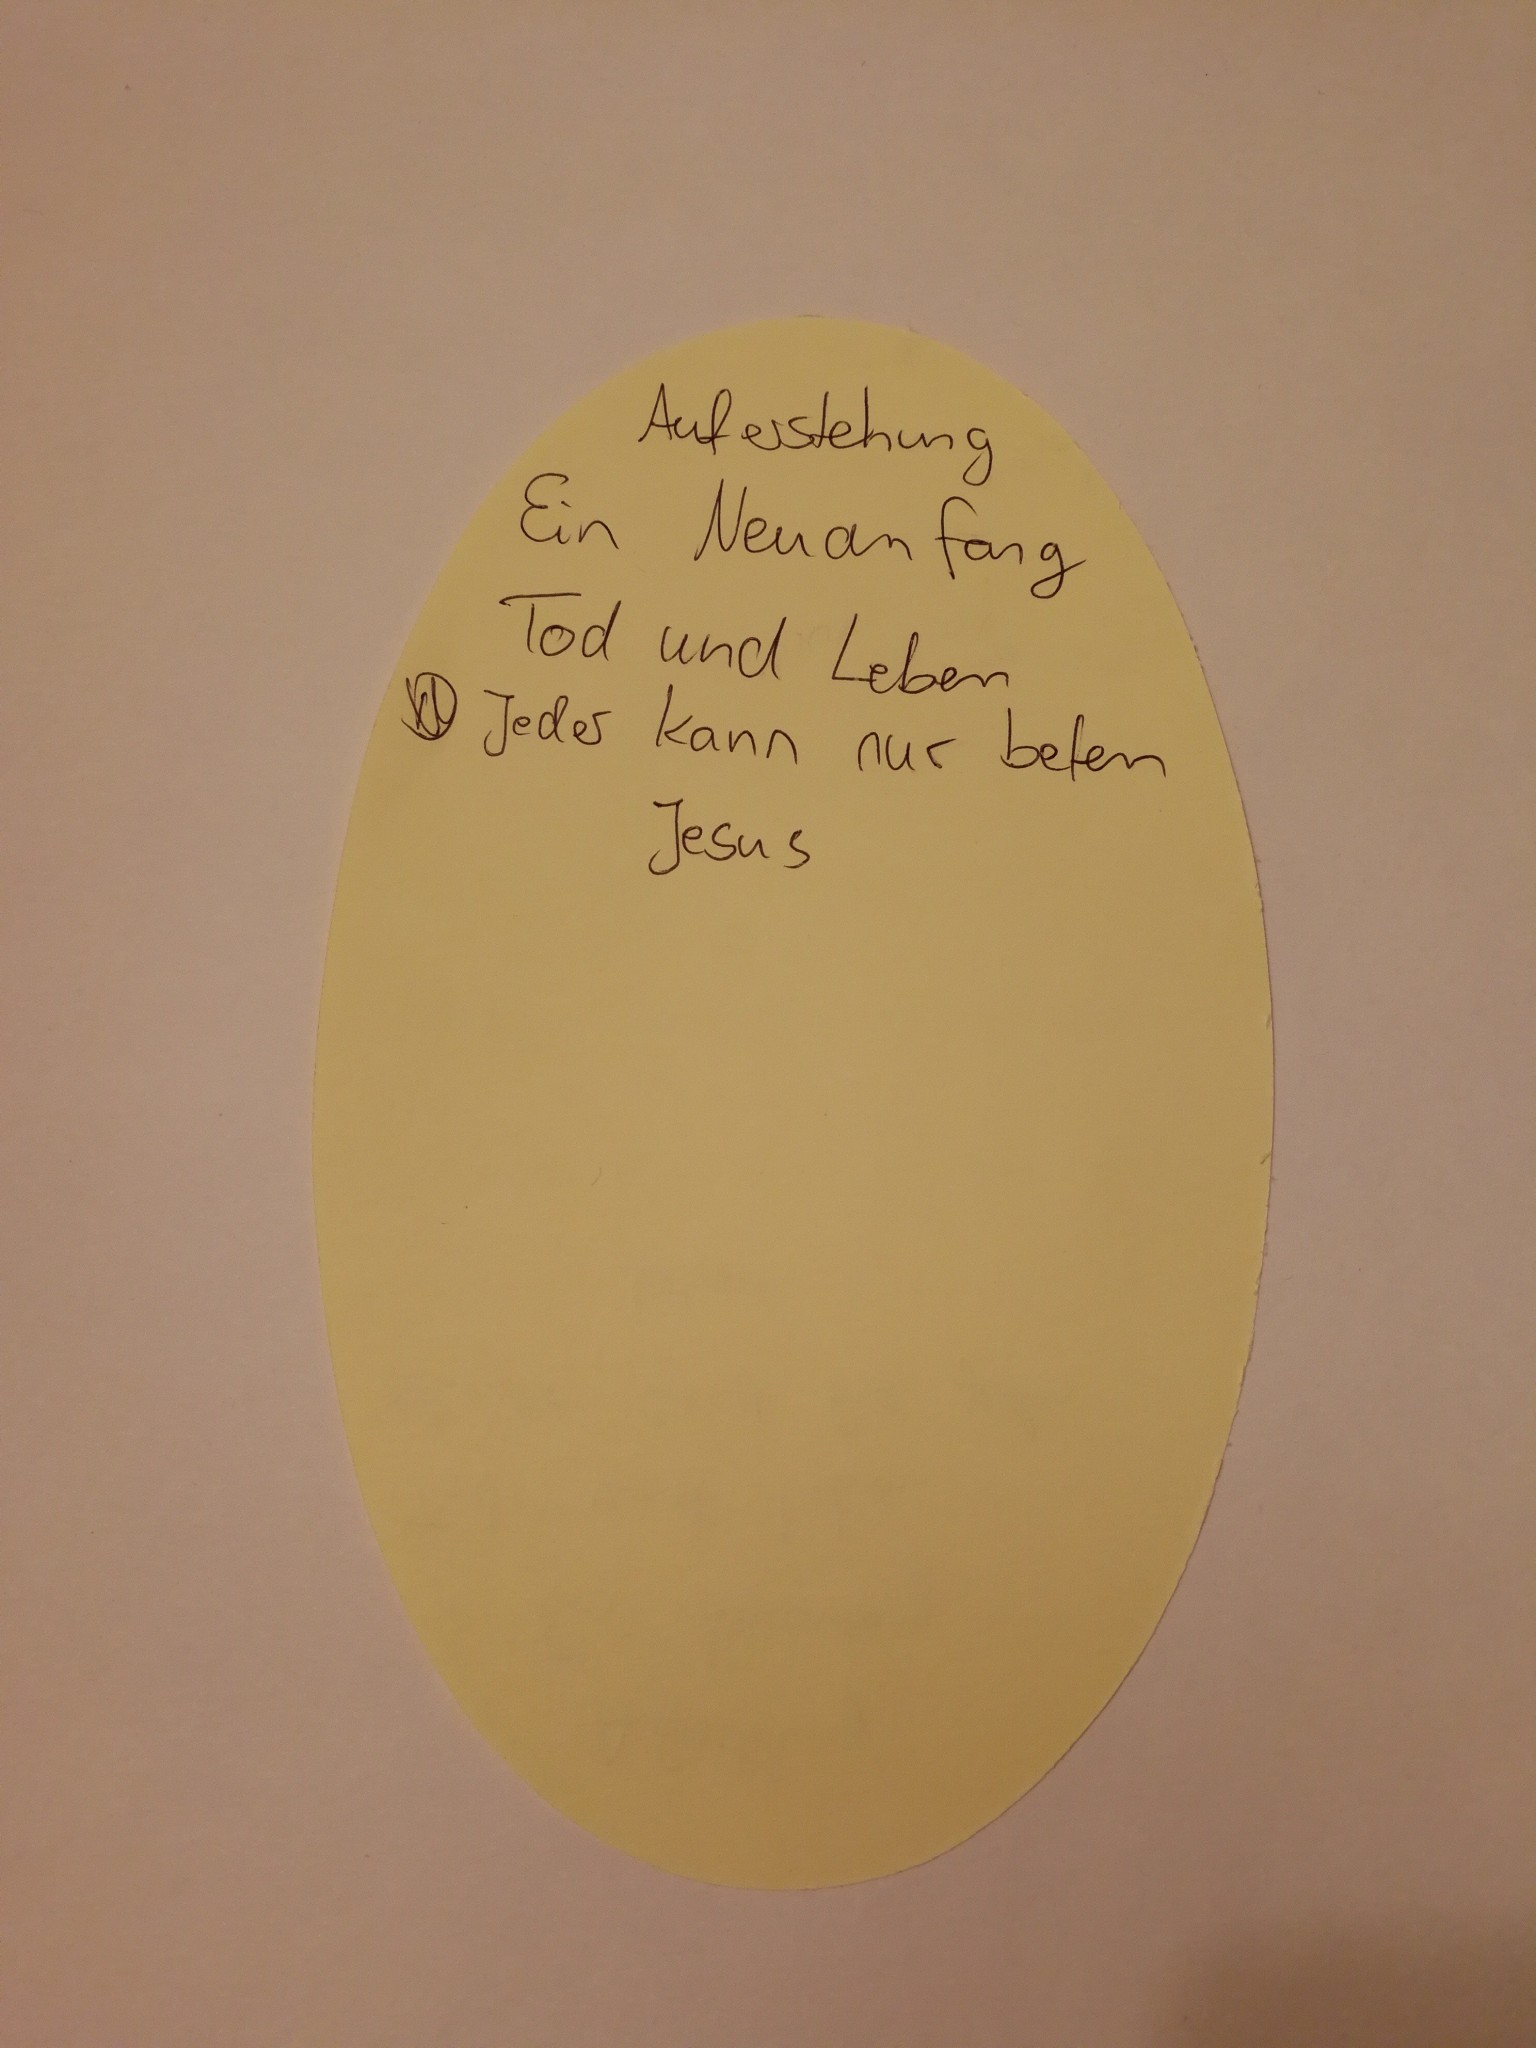 Auferstehung
Ein Neuanfang
Tod und Leben
Jeder kann nur beten
Jesus